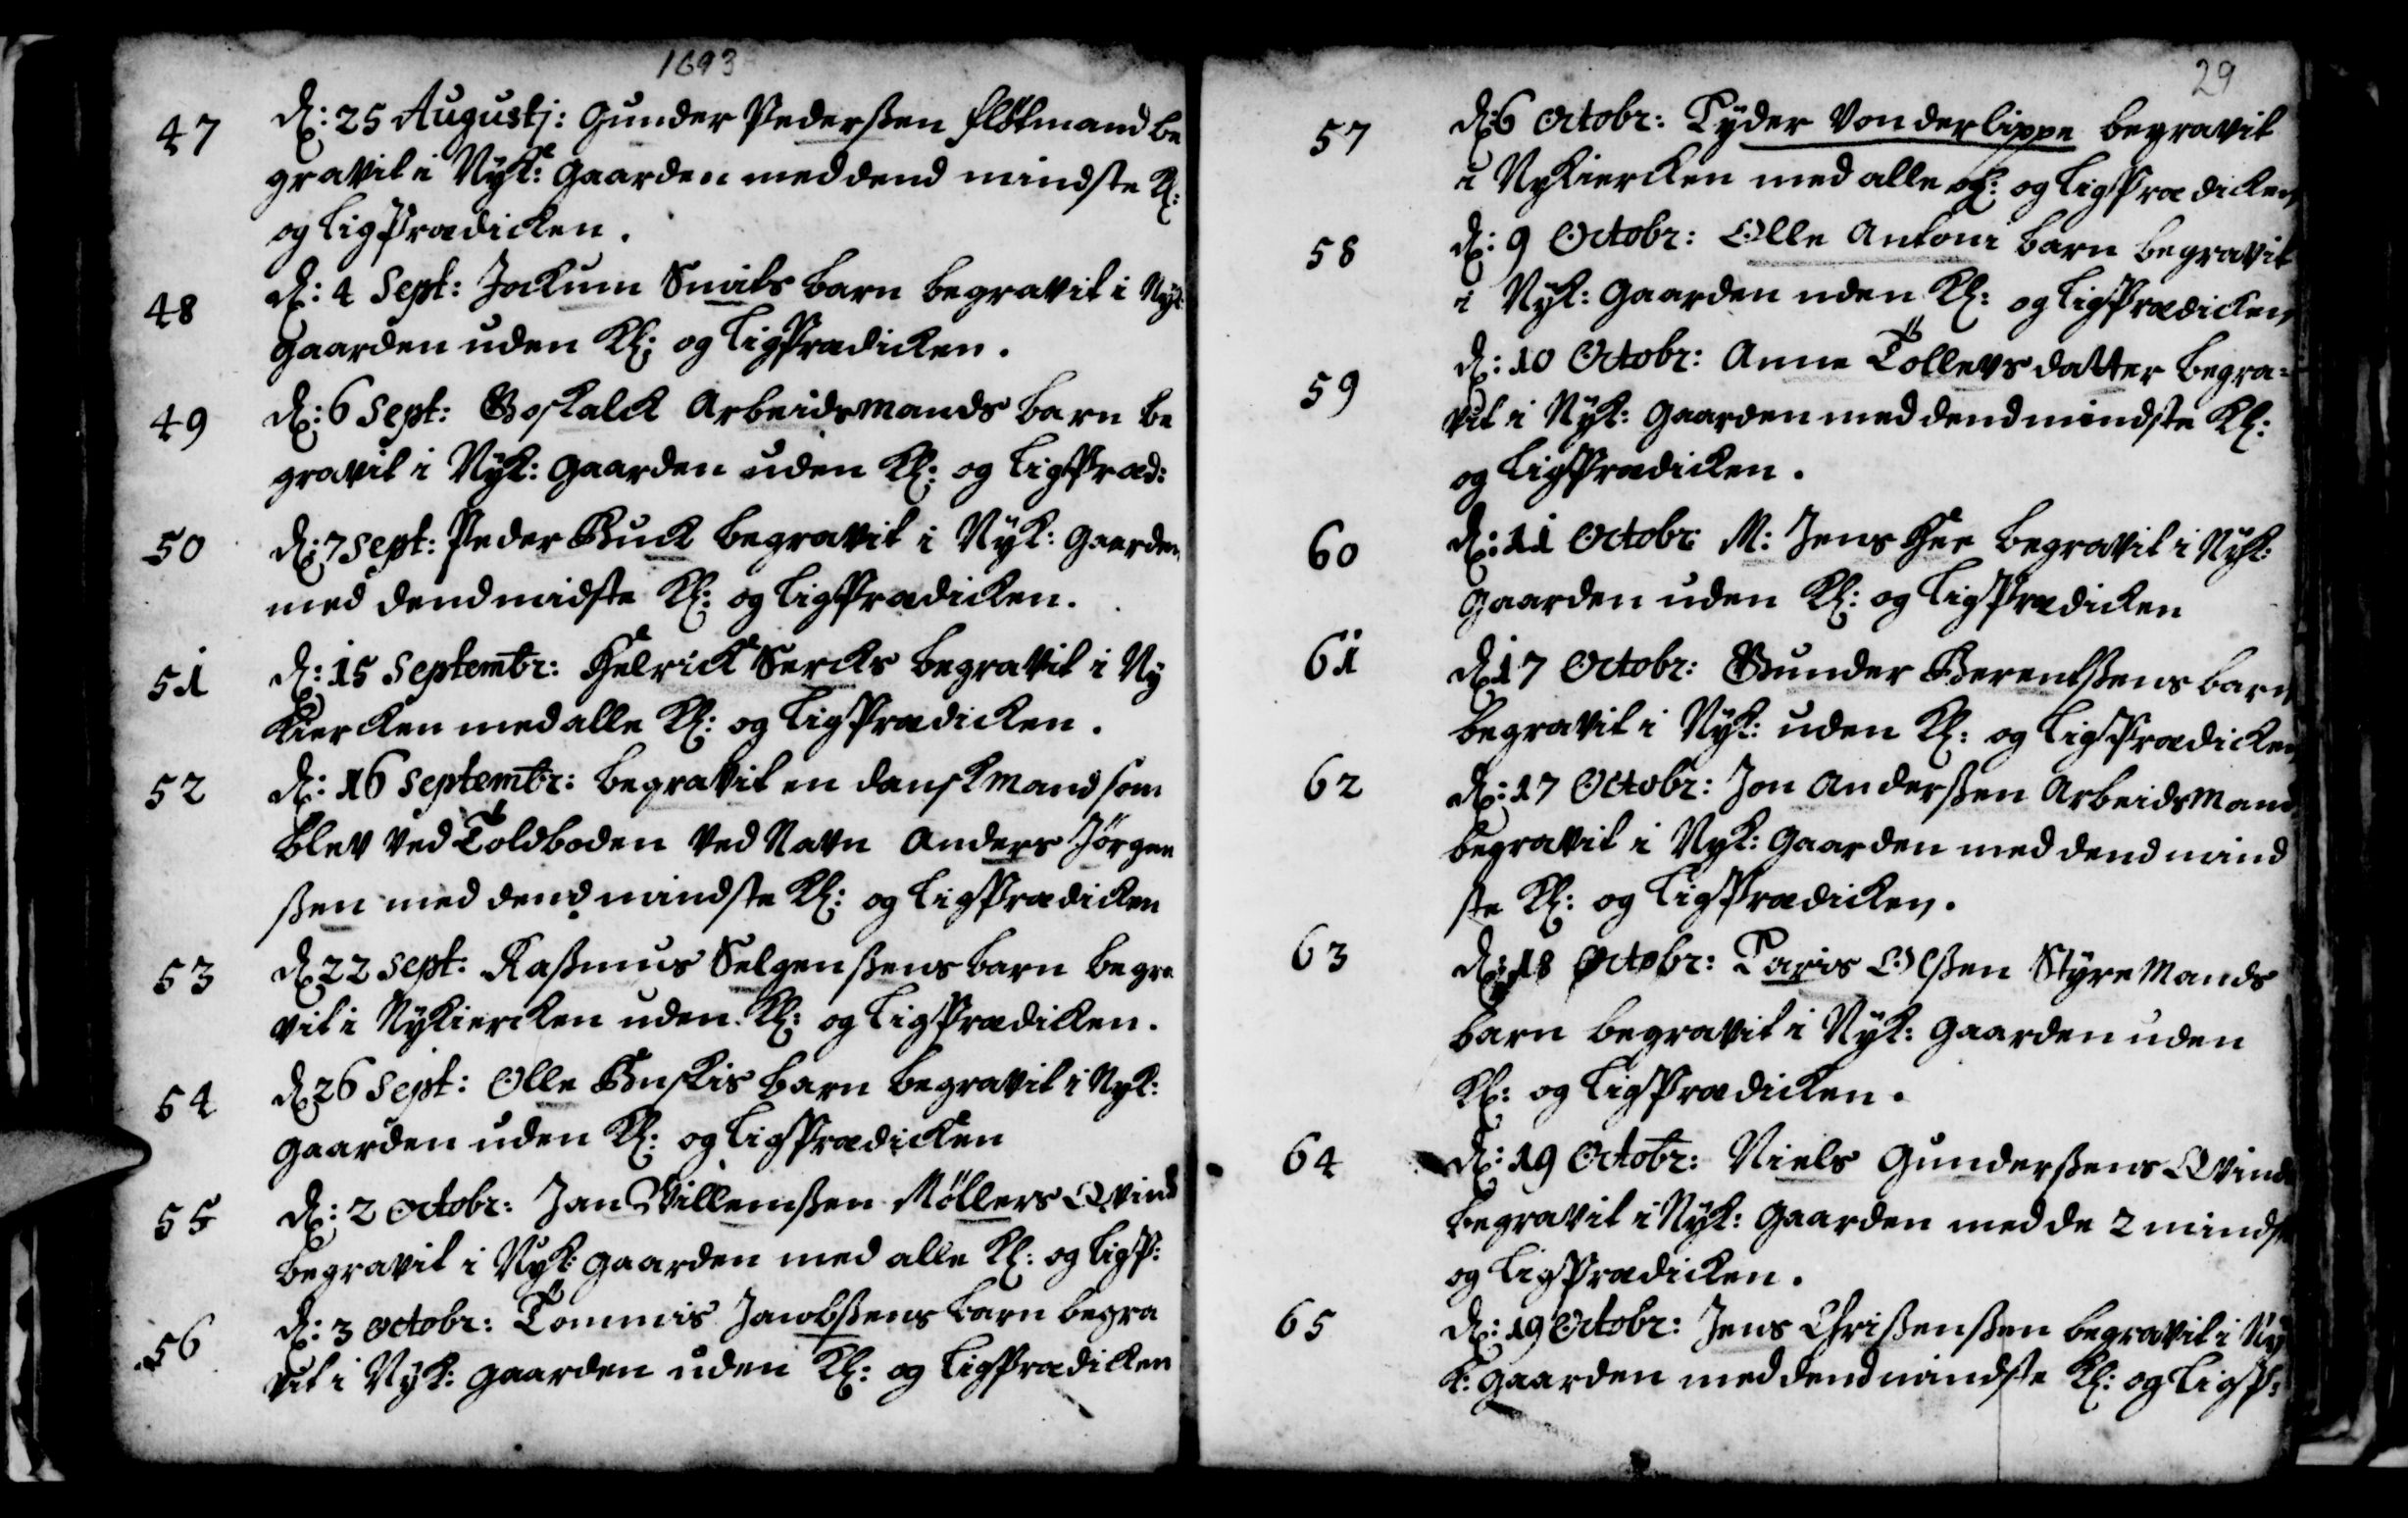 1693
47 d: 25 Augustj: Gunder Pederßen fløtmand be
gravit i Nyk: Gaarden med dend mindste K:
og LigPrædicken.
48 d: 4 Sept: Jockum Smits barn begravit i Nyk
Gaarden uden Kl: og LigPrædicken.
49 d: 6 Sept: Goskalck Arbeidsmands barn be
gravit i Nyk: Gaarden uden Kl: og LigPræd:
50 d: 7 Sept: Peder Buck begravit i Nyk: Gaarden
med dend midste Kl: og LigPrædicken.
51 d: 15 Septembr: Helrick Sercks begravit i Ny
Kiercken med alle Kl: og LigPrædicken.
52 d: 16 Septembr: begravit en dansk Mand som
blev ved Toldboden ved Navn Anders Jörgen
ßen med dend mindste Kl: og LigPrædicken
53 d 22 Sept: Raßmus Selgenßens barn begra
vit i Nykiercken uden Kl: og LigPrædicken.
54 d 26 Sept: Olle Buskis barn begravit i Nyk:
Gaarden uden Kl: og LigPrædicken
55 d: 2 Octobr: Jan Willemßen Møllers Qvind
begravit i Nyk: Gaarden med alle Kl: og LigP:
56 d: 3 Octobr: Tommis Jacobßens barn begra
vit i Nyk: gaarden uden Kl: og LigPrædicken
29
57 d: 6 Octobr: Tyder Vonderlippe begravit
i Nykiercken med alle Kl: og LigPrædicken
58 d: 9 Octobr: Olle Antoni barn begravit
i Nyk: Gaarden uden Kl: og LigPrædicken
59 d: 10 Octobr: Anne Tollevs datter begra=
vit i Nyk: Gaarden med dend mindste Kl:
og LigPrædicken.
60 d: 11 Octobr: M: Jens begravit i Nyk:
Gaarden uden Kl: og LigPrædicken
61 d 17 Octobr: Gunder Berentßens barn
begravit i Nyk: uden Kl: og LigPrædicken
62 d: 17 Octobr: Jon Anderßen Arbeidsmand
begravit i Nyk: Gaarden med dend mind
ste Kl: og LigPrædicken.
63 d: 18 Octobr: Paris Olßen Styremands
barn begravit i Nyk: Gaarden uden
Kl: og LigPrædicken.
64 d: 19 Octobr: Niels Gunderßens Qvinde
begravit i Nyk: Gaarden med de 2 mindste
og LigPrædicken.
65 d: 19 Octobr: Jens Chrißenßen begravit i Ny
K: gaarden med dend mindste Kl: og LigP: